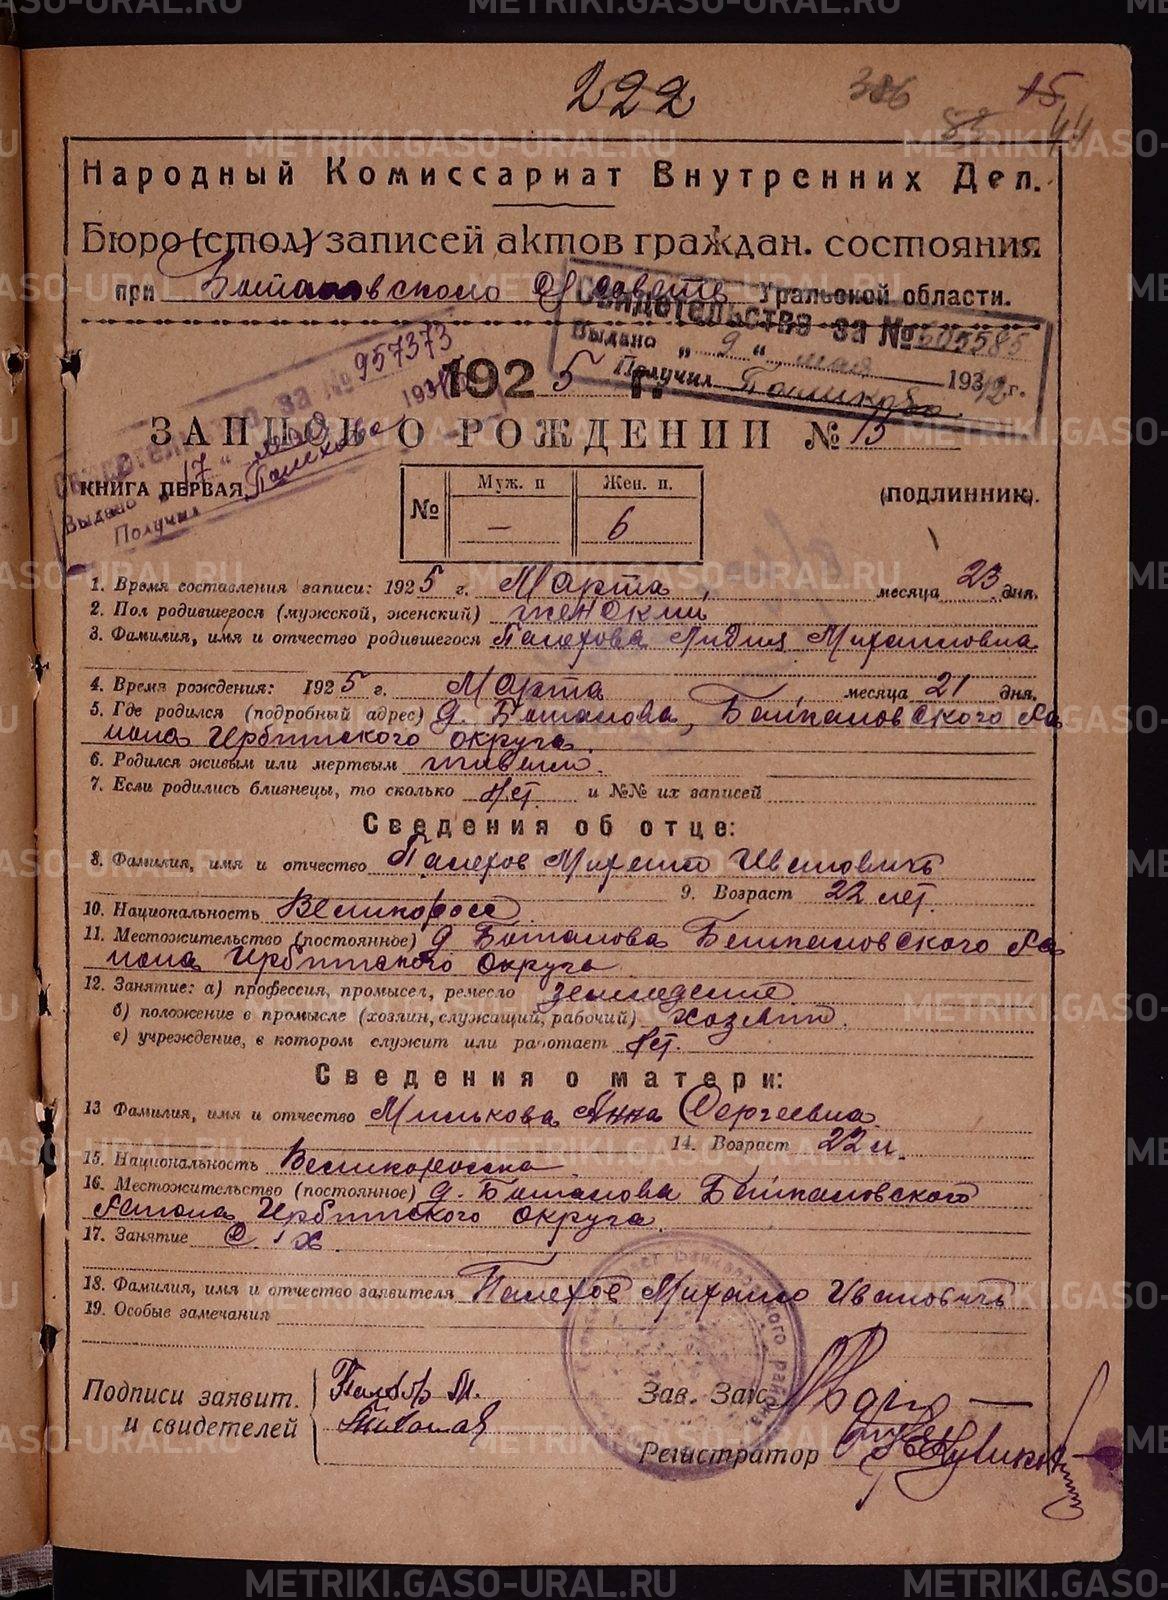 222
386
15
44
Народный Комиссариат Внутренних Дел.
Бюро (стол) записей актов граждан. состояния
при Боталовского с/совете Уральской области.
Свидетельство за № 505585
Выдано „ 9 “ мая 1942 г.
Получил
Свидетельство за № 957373
Выдано „ 17 “ мая 193
Получил Палехова
1925 г.
ЗАПИСЬ О РОЖДЕНИИ № 13
КНИГА ПЕРВАЯ.
(ПОДЛИННИК).
№ Муж. п Жен. п.
— 6
1. Время составления записи: 1925 г. Марта месяца 23 дня.
2. Пол родившегося (мужской, женский) женский
3. Фамилия, имя и отчество родившегося Палехова Лидия Михаиловна
4. Время рождения: 1925 г. Марта месяца 21 дня.
5. Где родился (подробный адрес) д. Боталова, Байкаловского Ра
иона Ирбитского округа.
6. Родился живым или мертвым живым.
7. Если родились близнецы, то сколько нет. и №№ их записей
Сведения об отце:
8. Фамилия, имя и отчество Палехов Михаило Ивановичъ
9. Возраст 22 лет.
10. Национальность Великоросс.
11. Местожительство (постоянное) д Боталова Байкаловского Ра
иона Ирбитского Округа
12. Занятие: а) профессия, промысел, ремесло земледелие
б) положение в промысле (хозяин, служащий, рабочий) хозяин.
в) учреждение, в котором служит или работает нет.
Сведения о матери:
13 Фамилия, имя и отчество Милькова Анна Сергеевна.
14. Возраст 22 л.
15. Национальность Великоросска
16. Местожительство (постоянное) д. Боталова Байкаловского
Раиона Ирбитского округа.
17. Занятие С. х.
18. Фамилия, имя и отчество заявителя Палехов Михаило Ивановичъ
19. Особые замечания
Подписи заявит.
и свидетелей
Зав. Зак.
Регистратор
METRIKI.GASO-URAL.RU